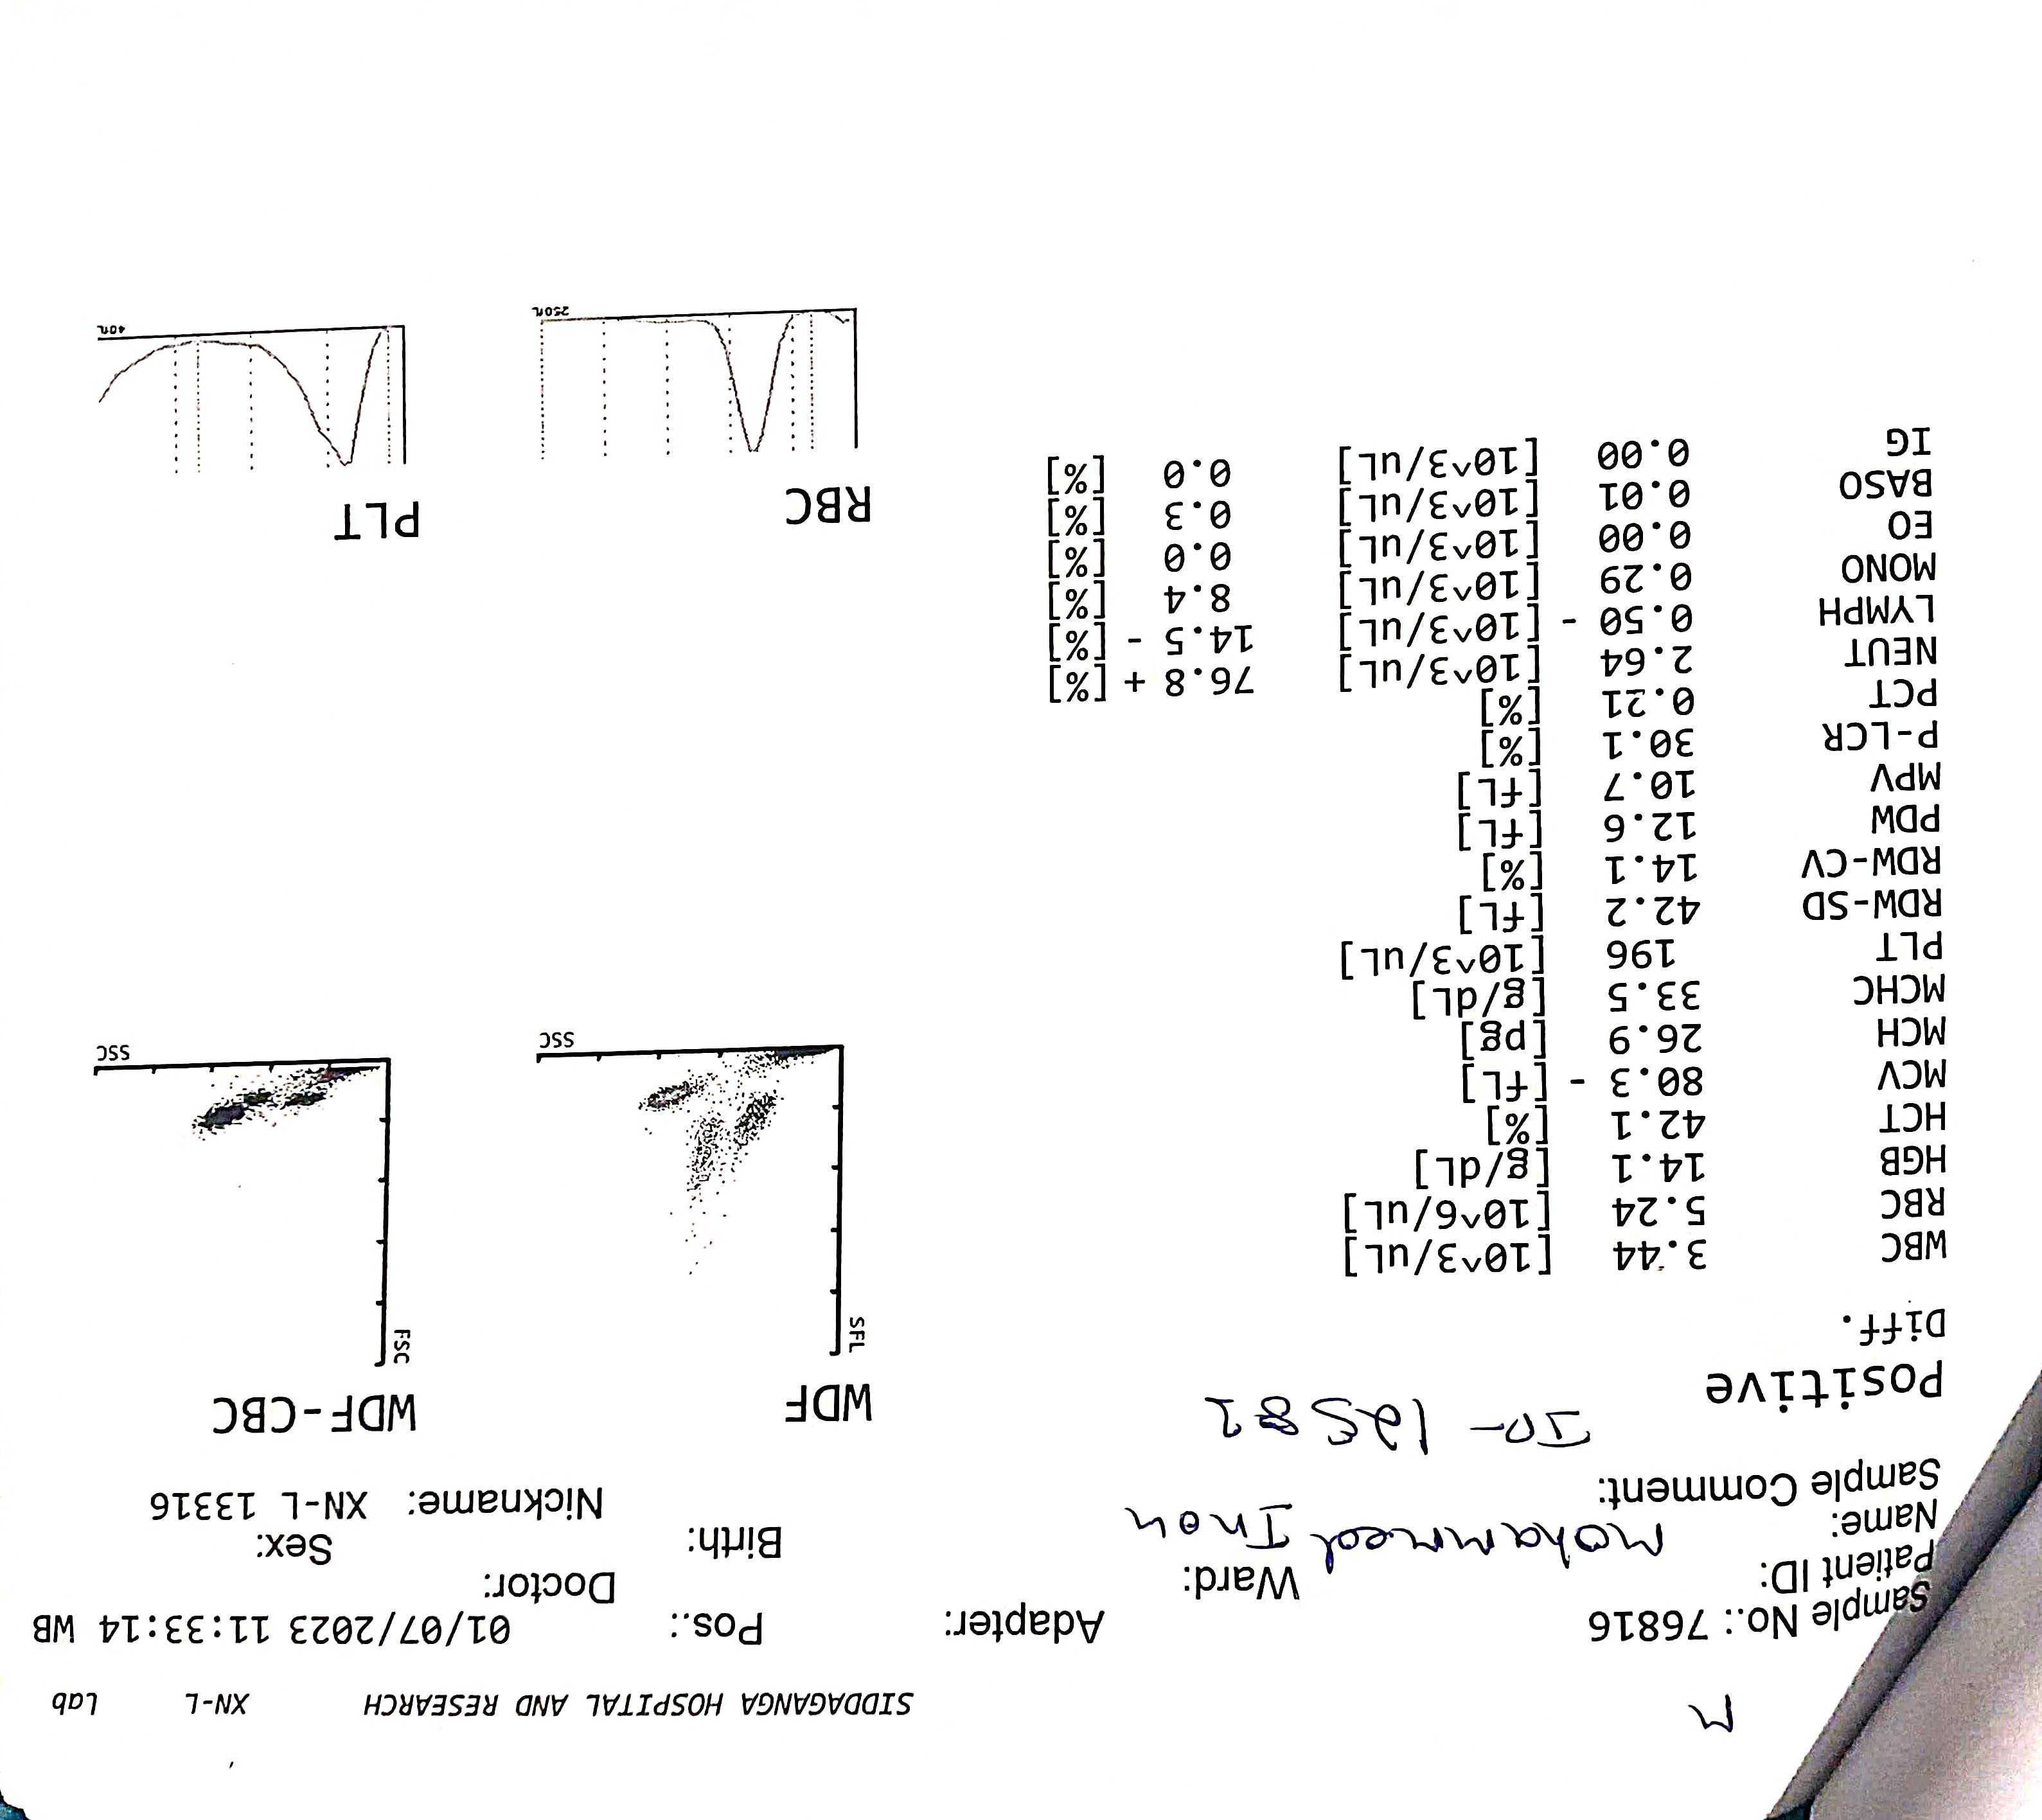 M
SIDDAGANGA HOSPITAL AND RESEARCH XN-L Lab
Sample No.: 76816 Adapter: Pos.: 01/07/2023 11:33:14 WB
Patient ID: Ward: Doctor:
Name: Mohammed Birth: Sex:
Sample Comment: Nickname: XN-L 13316
12581
Positive
Diff.
WBC 3.44 [10^3/uL]
RBC 5.24 [10^6/uL]
HGB 14.1 [g/dL]
HCT 42.1 [%]
MCV 80.3 - [fL]
MCH 26.9 [pg]
MCHC 33.5 [g/dL]
PLT 196 [10^3/uL]
RDW-SD 42.2 [fL]
RDW-CV 14.1 [%]
PDW 12.6 [fL]
MPV 10.7 [fL]
P-LCR 30.1 [%]
PCT 0.21 [%]
NEUT 2.64 [10^3/uL] 76.8 + [%]
LYMPH 0.50 - [10^3/uL] 14.5 - [%]
MONO 0.29 [10^3/uL] 8.4 [%]
EO 0.00 [10^3/uL] 0.0 [%]
BASO 0.01 [10^3/uL] 0.3 [%]
IG 0.00 [10^3/uL] 0.0 [%]
WDF
SFL
SSC
WDF-CBC
FSC
SSC
RBC
250fL
PLT
40fL